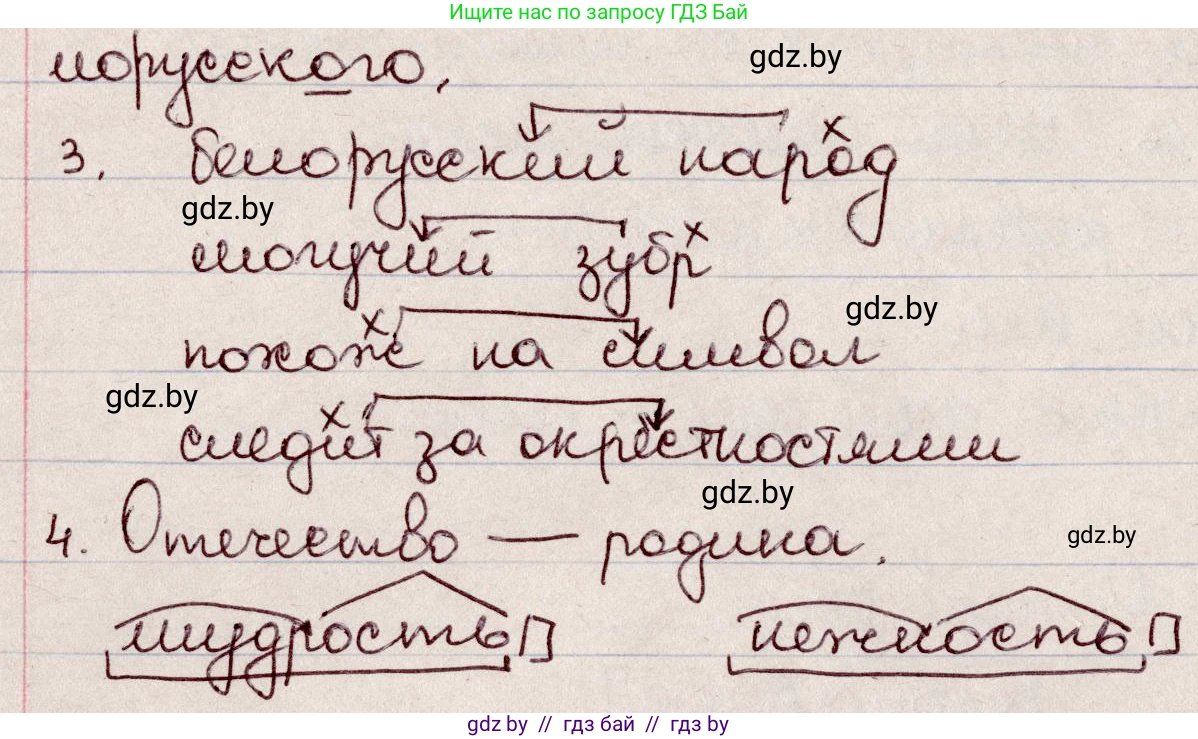 Ищите нас по запросу ГДЗ Бай
лорусского.
gdz.by
3. белорусский народ
gdz.by
могучий зубр
gdz.by
похож на символ
gdz.by
следит за окрестностями
gdz.by
4. Отечество — родина.
gdz.by
мудрость нежность
gdz.by // гдз бай // гдз by